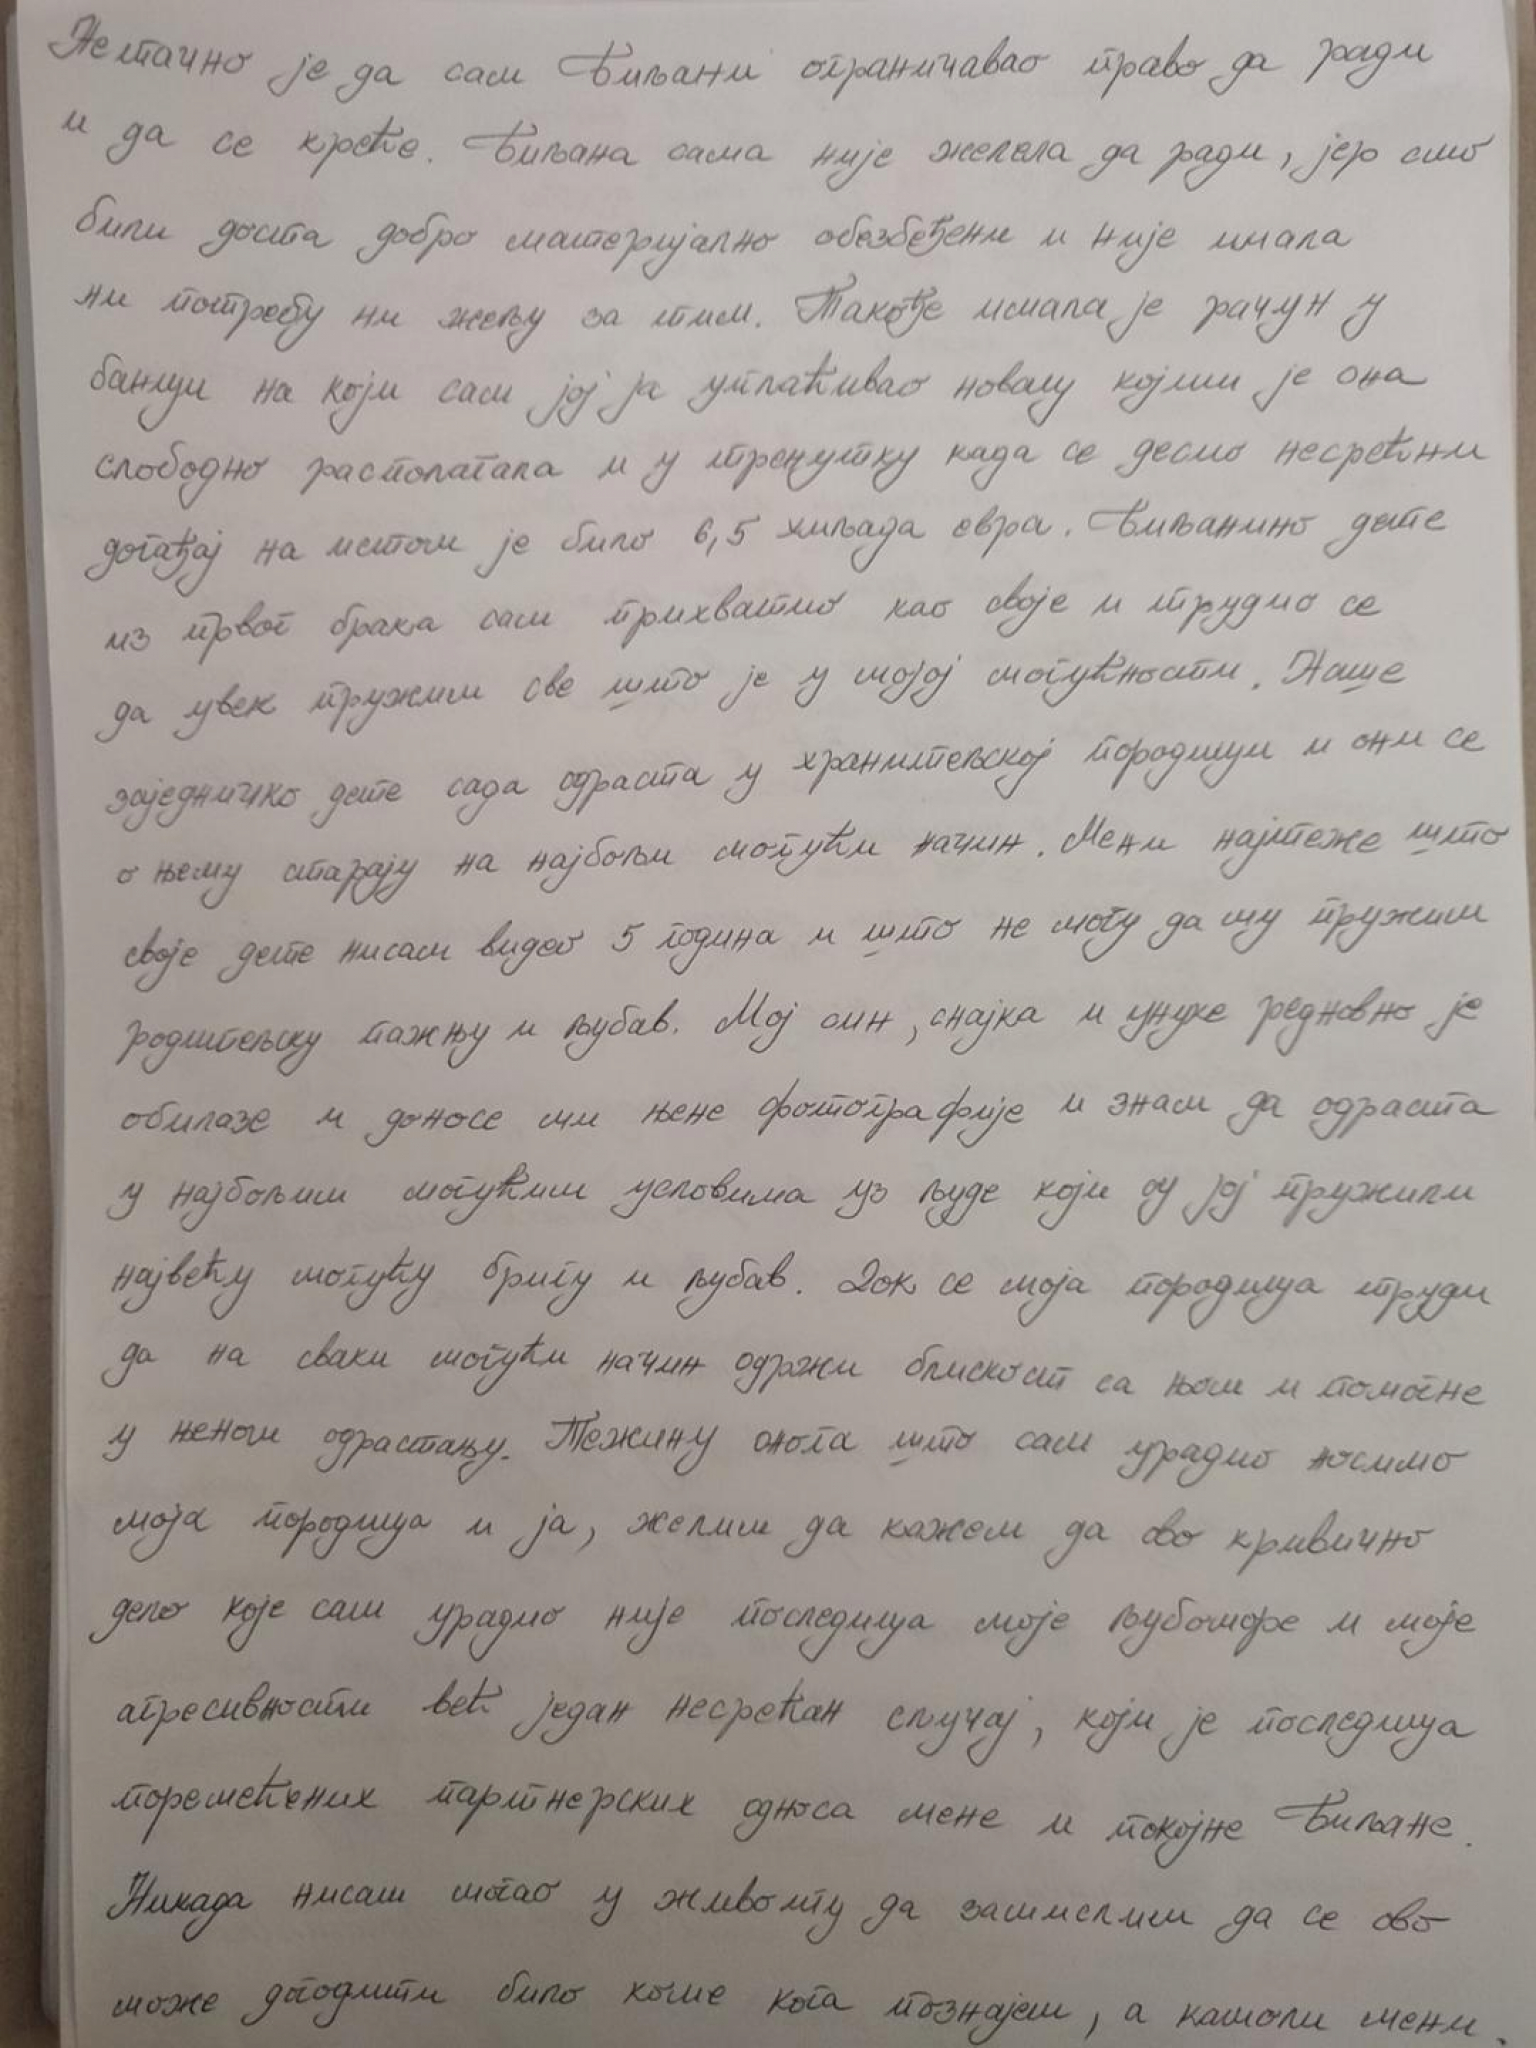 Нетачно је да сам Биљани ограничавао право да ради
и да се креће. Биљана сама није желела да ради, јер смо
били доста добро материјално обезбеђени и није имала
ни потребу ни жељу за тим. Такође имала је рачун у
банци на који сам јој ја уплаћивао новац којим је она
слободно располагала и у тренутку када се десио несрећни
догађај на истом је било 6,5 хиљада евра. Биљанино дете
из првог брака сам прихватио као своје и трудио се
да увек пружим све што је у мојој могућности. Наше
заједничко дете сада одраста у хранитељској породици и они се
о њему старају на најбољи могући начин. Мени најтеже што
своје дете нисам видео 5 година и што не могу да му пружим
родитељску пажњу и љубав. Мој син, снајка и унуке редновно је
обилазе и доносе ми њене фотографије и знам да одраста
у најбољим могућим условима уз људе који су јој пружили
највећу могућу бригу и љубав. Док се моја породица труди
да на сваки могући начин одржи блискост са њом и помогне
у неном одрастању. Тежину онога што сам урадио носимо
моја породица и ја, желим да кажем да ово кривично
дело које сам урадио није последица моје љубоморе и моје
агресивности већ један несрећан случај, који је последица
поремећених партнерских односа мене и покојне Биљане.
Никада нисам могао у животу да замислим да се ово
може догодити било коме кога познајем, а камоли мени.